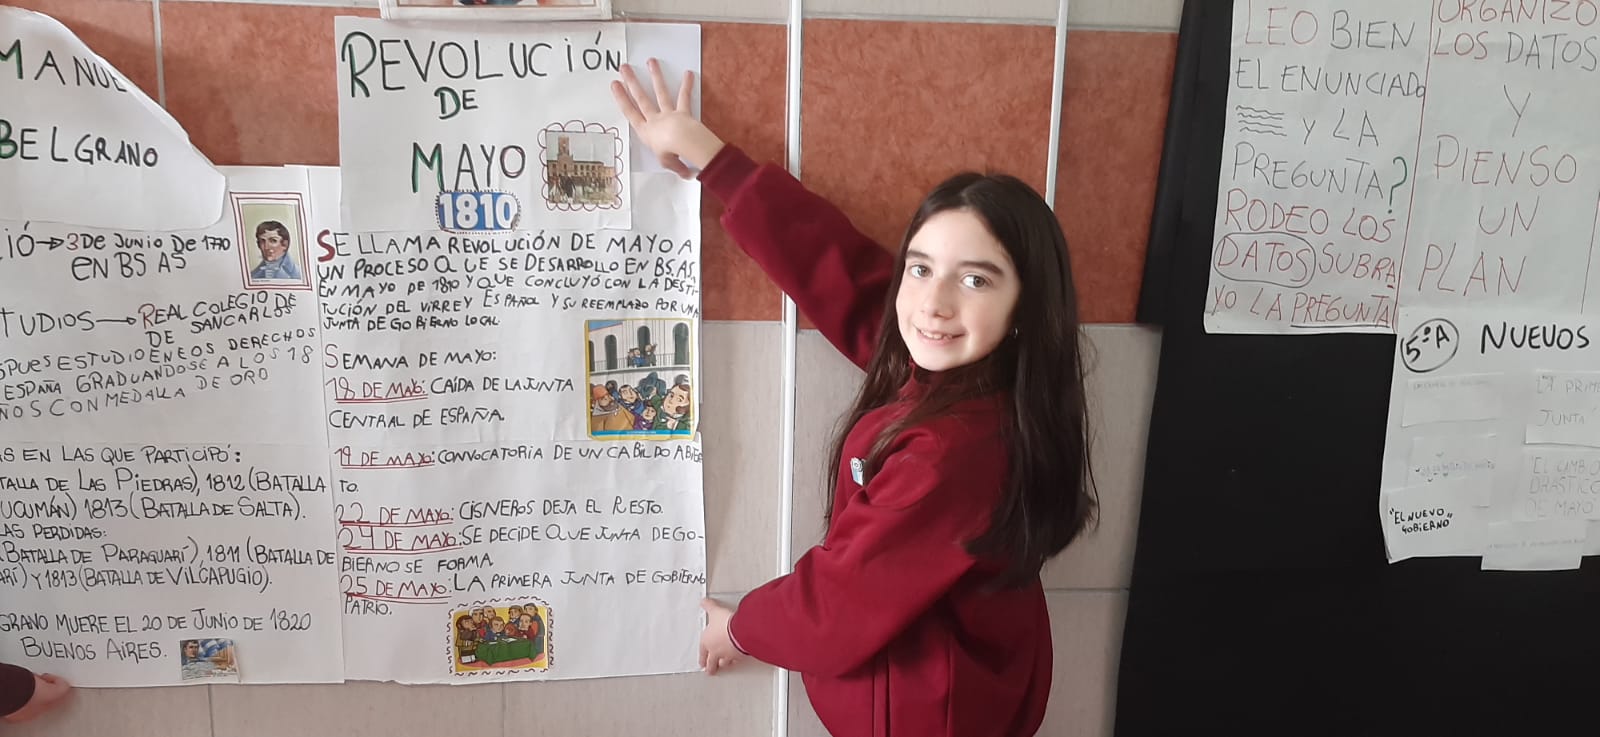 MANUE
BELGRANO
IÓ→3 DE JUNIO DE 1770
EN BS AS
TUDIOS→REAL COLEGIO DE
DE SAN CARLOS
SPUES ESTUDIO EN EOS DERECHOS
ESPAÑA GRADUANDOSE A LOS 18
ÑOS CON MEDALLA DE ORO
S EN LAS QUE PARTICIPÓ:
TALLA DE LAS PIEDRAS), 1812 (BATALLA
UCUMÁN) 1813 (BATALLA DE SALTA).
LAS PERDIDAS:
(BATALLA DE PARAGUARÍ), 1811 (BATALLA DE
ARÍ) Y 1813 (BATALLA DE VILCAPUGIO).
GRANO MUERE EL 20 DE JUNIO DE 1820
BUENOS AIRES.
REVOLUCIÓN
DE
MAYO
1810
SE LLAMA REVOLUCIÓN DE MAYO A
UN PROCESO QUE SE DESARROLLO EN BS. AS.
EN MAYO DE 1810 Y QUE CONCLUYÓ CON LA DESTI-
TUCIÓN DEL VIRREY ESPAÑOL Y SU REEMPLAZO POR UNA
JUNTA DE GOBIERNO LOCAL.
SEMANA DE MAYO:
18 DE MAYO: CAÍDA DE LA JUNTA
CENTRAL DE ESPAÑA.
19 DE MAYO: CONVOCATORIA DE UN CABILDO ABIER
TO.
22 DE MAYO: CISNEROS DEJA EL PUESTO.
24 DE MAYO: SE DECIDE QUE JUNTA DE GO-
BIERNO SE FORMA
25 DE MAYO: LA PRIMERA JUNTA DE GOBIERNO
PATRIO.
LEO BIEN
EL ENUNCIADO
Y LA
PREGUNTA?
RODEO LOS
DATOS SUBRA
YO LA PREGUNTA
ORGANIZO
LOS DATOS
Y
PIENSO
UN
PLAN
5ºA NUEVOS
LA PRIME
JUNTA
EL CAMBIO
DRÁSTICO
DE MAYO
"EL NUEVO
GOBIERNO"